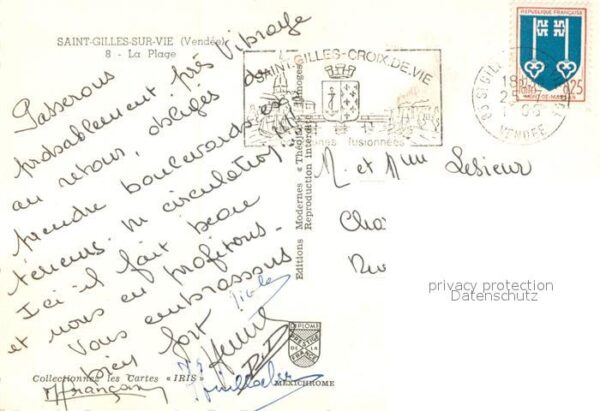 SAINT-GILLES-SUR-VIE (Vendée)
8 - La Plage
Passerons
probablement près Vibraye
au retour, obligés de
prendre boulevards ext
térieurs. M circulation
Ici il fait beau
et nous en profitons.
Vous embrassons
bien fort
Françoise
Collectionnez les Cartes « IRIS »
MEXICHROME
DIPLOME PRESTIGE DE LA FRANCE
Editions Modernes « Théojac » Limoges
Reproduction interdite
SAINT-GILLES-CROIX.DE.VIE
fusionnées
REPUBLIQUE FRANÇAISE
0,25
MONT-DE-MARSAN
85 ST GILLES
VENDEE
M. et Mme Lesieur
privacy protection
Datenschutz